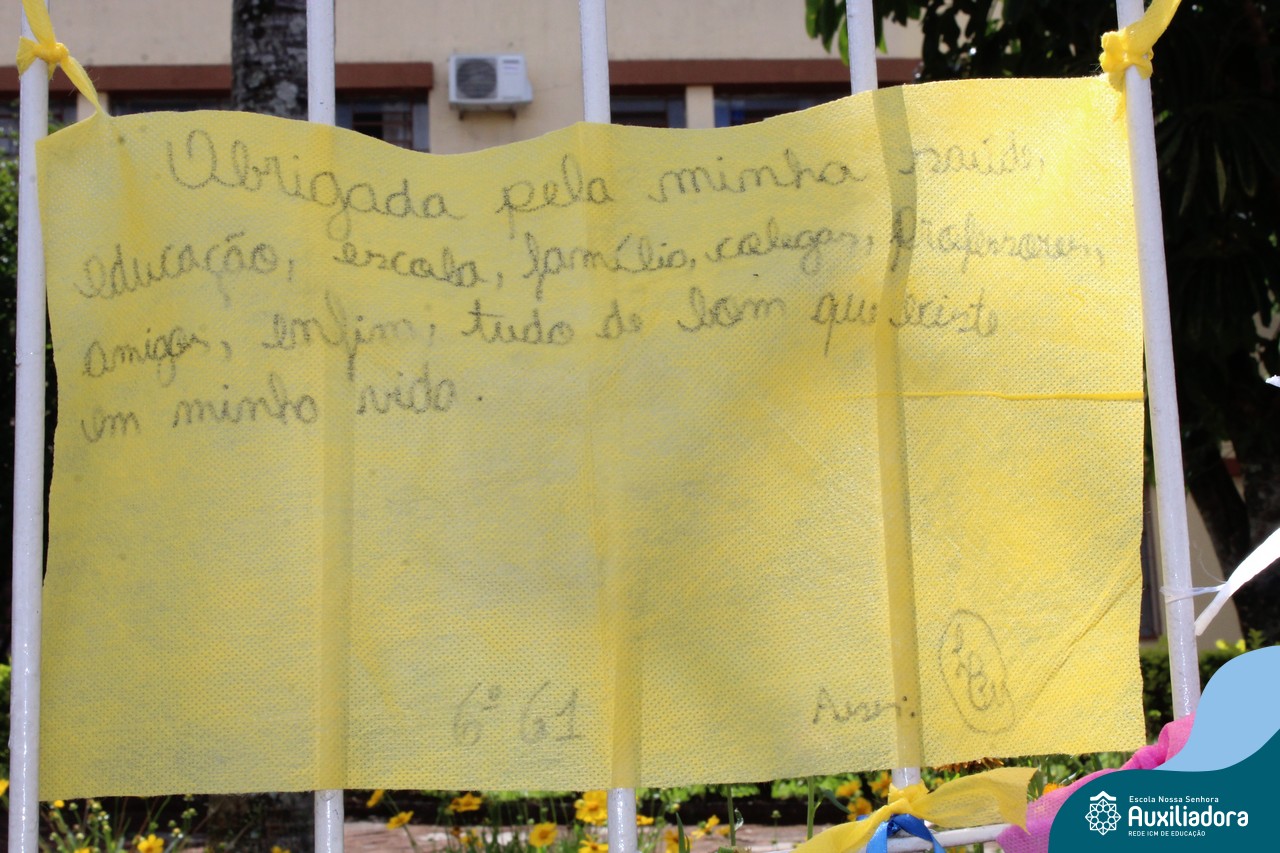 Obrigada pela minha saúde,
educação, escola, família, colegas, professores,
amigos, enfim, tudo de bom que existe
em minha vida.
6º 61
Escola Nossa Senhora
Auxiliadora
REDE ICM DE EDUCAÇÃO